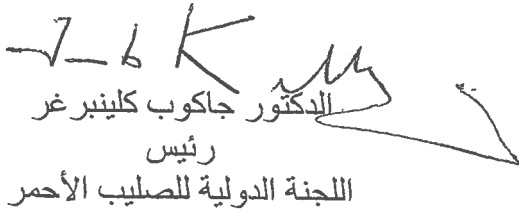 الدكتور جاكوب كلينبرغر
رئيس
اللجنة الدولية للصليب الأحمر